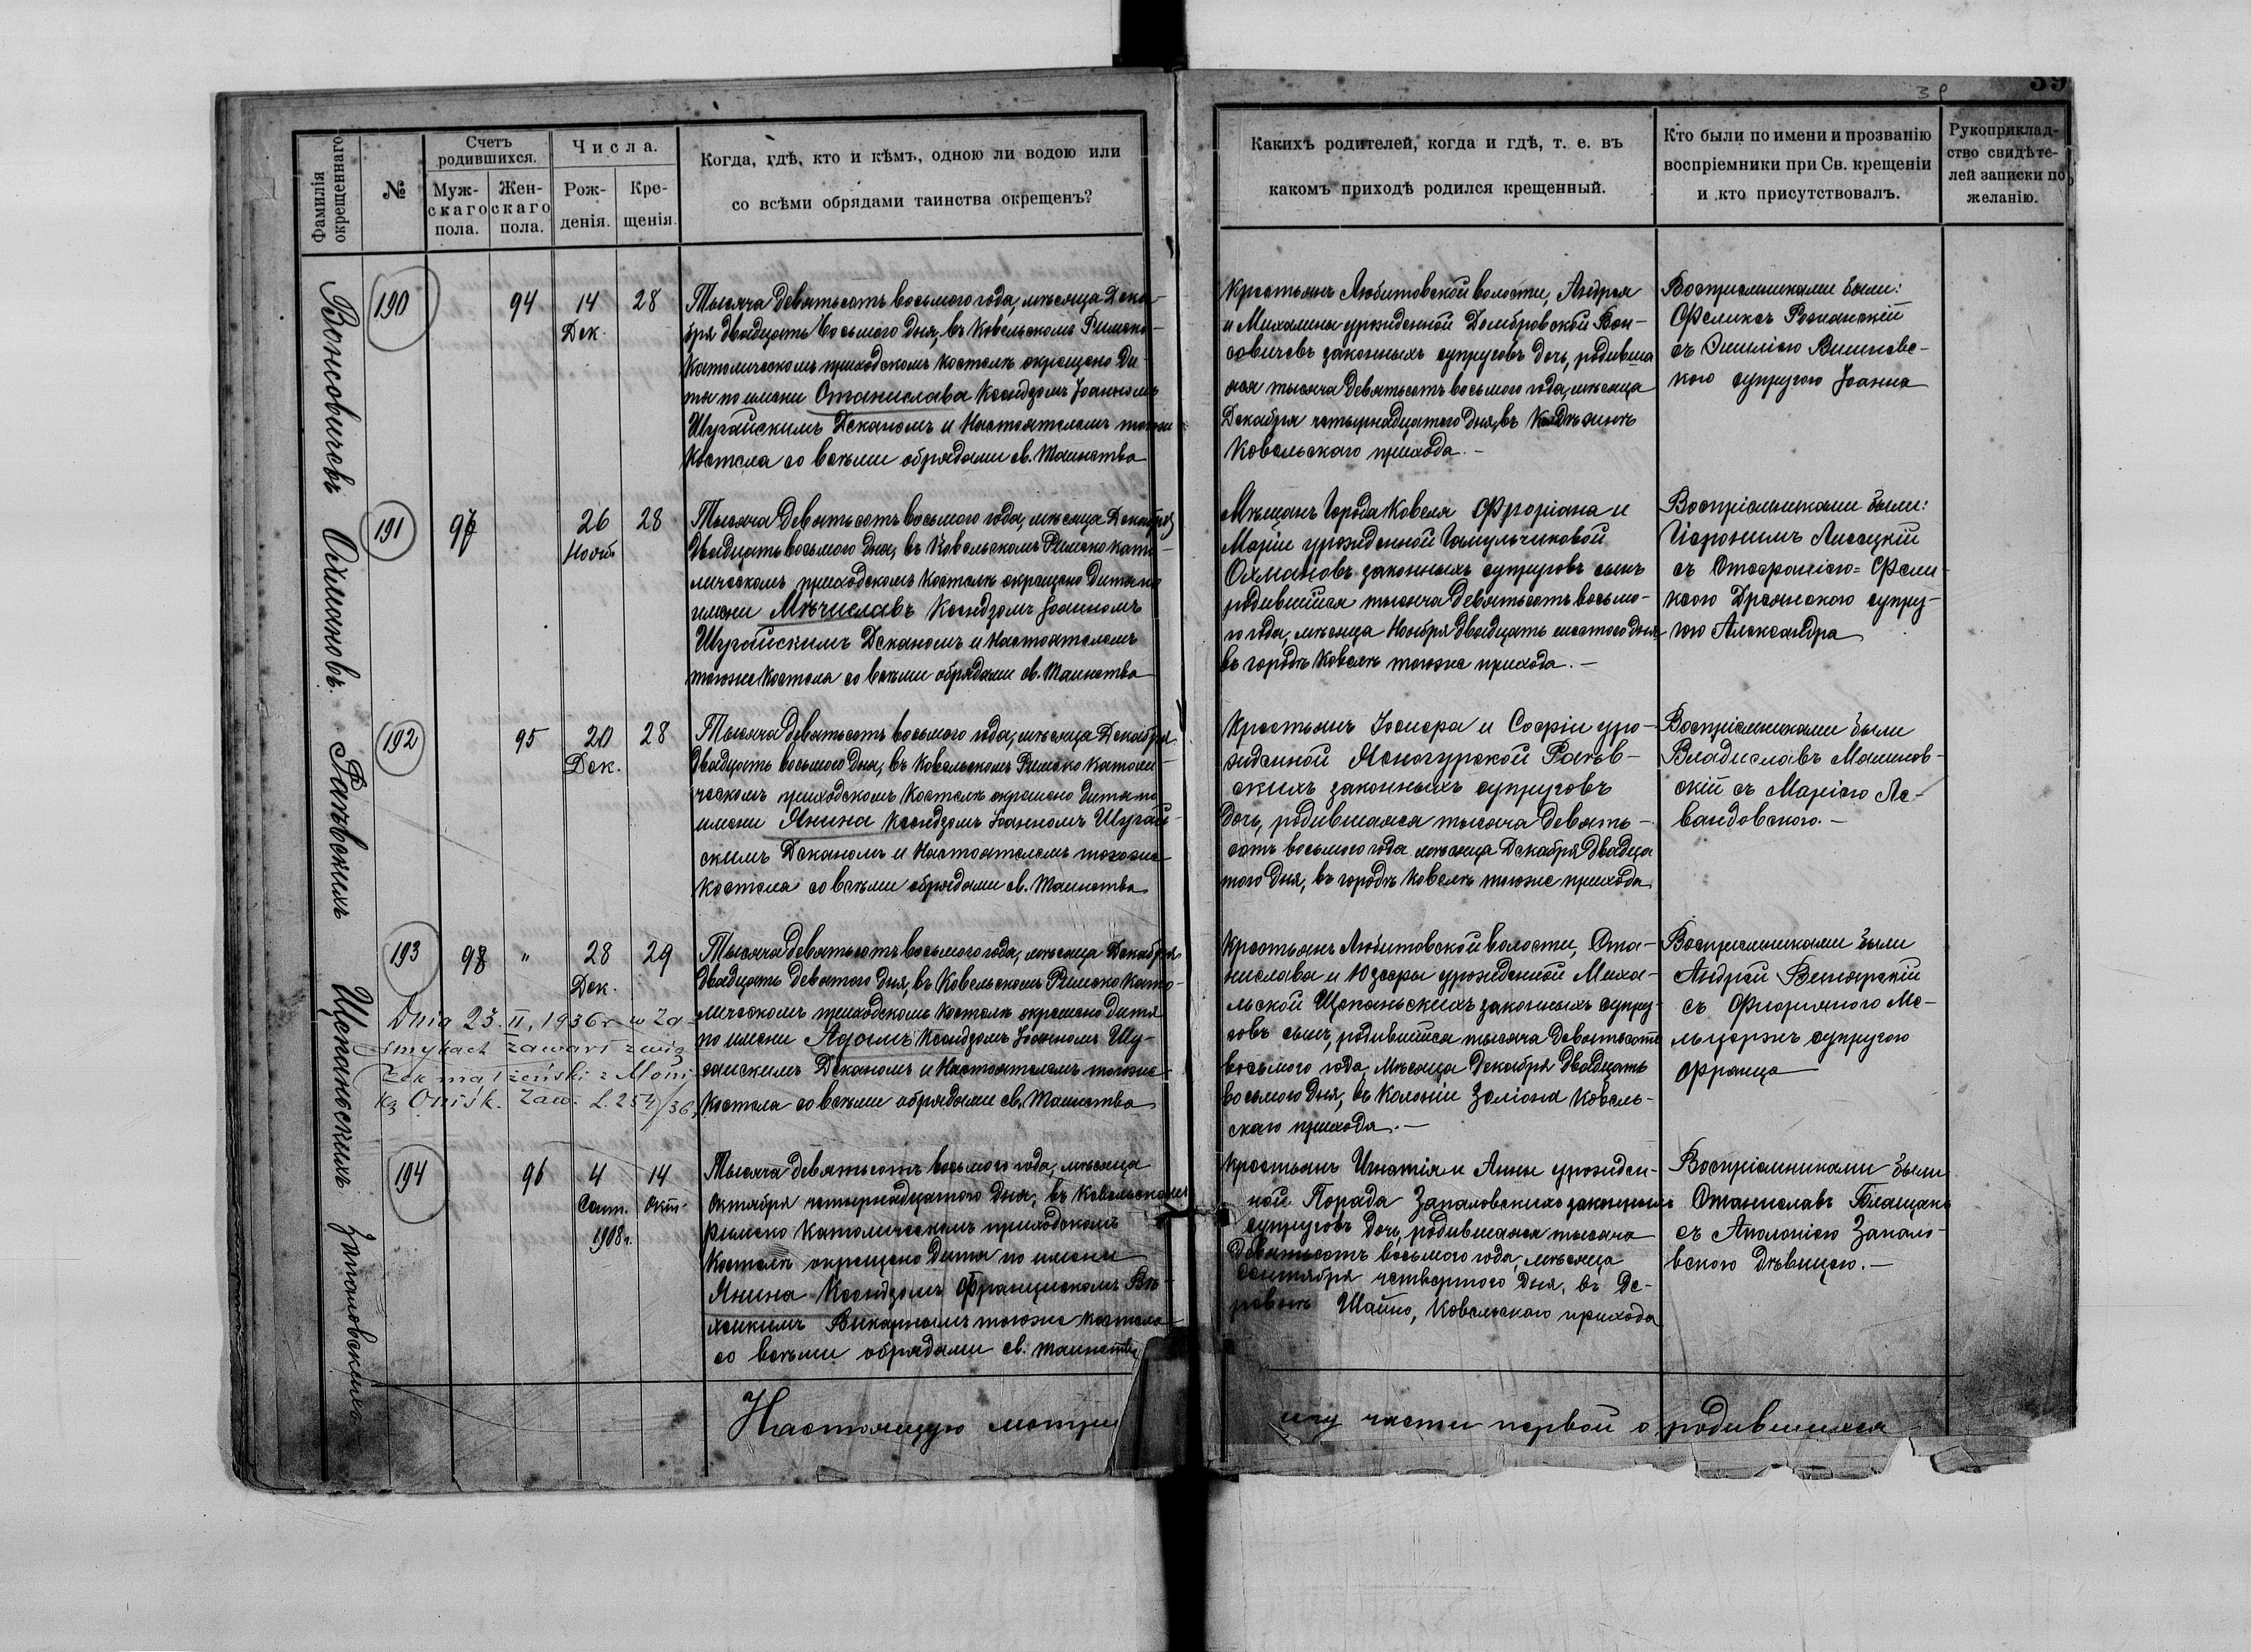 39
39
Фамилія окрещеннаго
№
Счетъ родившихся.
Мужскаго пола.
Женскаго пола.
Числа.
Рожденія.
Крещенія.
Когда, гдѣ, кто и кѣмъ, одною ли водою или
со всѣми обрядами таинства окрещенъ?
Какихъ родителей, когда и гдѣ, т. е. въ
какомъ приходѣ родился крещенный.
Кто были по имени и прозванію
воспріемники при Св. крещеніи
и кто присутствовалъ.
Рукоприклад-
ство свидѣте-
лей записки по
желанію.
Вонсовичевъ
190
94
14
Дек.
28
Тысяча девятьсотъ восьмого года, мѣсяца Дека-
бря двадцать восьмого дня, въ Ковельскомъ Римско-
Католическомъ приходскомъ костелѣ окрещено ди-
тя по имени Станислава Ксендзомъ Іоанномъ
Шугайскимъ Деканомъ и Настоятелемъ тогоже
Костела со всѣми обрядами св. таинства
Крестьянъ Любитовской волости, Андрея
и Михалины урожденной Домбровской Вон-
совичевъ законныхъ супруговъ дочь, родивша
яся тысяча девятьсотъ восьмого года, мѣсяца
Декабря четырнадцатого дня, въ
Ковельскаго прихода.-
Воспріемниками были:
Феликсъ Рознанскій
съ Эмиліею Вишневс-
кою супругою Іоанна
Охмановъ.
191
97
26
Нояб
28
Тысяча девятьсотъ восьмого года, мѣсяца Декабря
двадцать восьмого дня, въ Ковельскомъ Римско като-
лическомъ приходскомъ Костелѣ окрещено дитя по
имени Мѣчиславъ Ксендзомъ Іоанномъ
Шугайскимъ Деканомъ и Настоятелемъ
тогоже Костела со всѣми обрядами св. таинства
Мѣщанъ города Ковеля Флоріана и
Маріи урожденной Гамульчиковой
Охмановъ законныхъ супруговъ сынъ
родившійся тысяча девятьсотъ восьмо-
го года, мѣсяца Ноября двадцать шестого дня
въ городѣ Ковелѣ тогоже прихода.-
Воспріемниками были:
Іеронимъ Лисецкій
съ Стефаніею-Фели-
супру-
гою Александра
Раевскихъ
192
95
20
Дек.
28
Тысяча девятьсотъ восьмого года, мѣсяца Декабря
двадцать восьмого дня, въ Ковельскомъ Римско католи-
ческомъ приходскомъ Костелѣ окрещено дитя по
имени Янина Ксендзомъ Іоанномъ Шугай-
скимъ Деканомъ и Настоятелемъ тогоже-
костела со всѣми обрядами св. таинства
Крестьянъ Іосифа и Софіи уро-
жденной Ясногурской
скихъ законныхъ супруговъ
дочь, родившаяся тысяча девять-
сотъ восьмого года мѣсяца Декабря двадца
того дня, въ городѣ Ковелѣ тогоже прихода
Воспріемниками были
Владиславъ Малинов-
скій съ Маріею Ле-
вандовскою.-
Щепанскихъ
193
98
"
28
Дек.
29
Тысяча девятьсотъ восьмого года, мѣсяца Декабря
двадцать девятого дня, въ Ковельскомъ Римско Като-
лическомъ приходскомъ Костелѣ окрещено дитя
по имени Адамъ Ксендзомъ Іоанномъ Шу-
гаискимъ Деканомъ и Настоятелемъ тогоже-
Костела со всѣми обрядами св. таинства
Dnia 23. II, 1936 r. w Za-
smykach zawarł zwią
zek małżeński z Moni-
ką Onisk. Zaw. L. 254/36.
Крестьянъ Любитовской волости, Ста-
нислава и Юзефы урожденной Миха-
льской Щепаньскихъ законныхъ супру-
говъ сынъ, родившійся тысяча девятьсотъ
восьмого года, мѣсяца Декабря двадцать
восьмого дня, въ Колоніи Зеліона Ковель-
скаго прихода.-
Воспріемниками были
Андрей
съ
супругою
Франца
Запаловскихъ
194
96
4
Сент.
1908 г.
14
Окт.
Тысяча девятьсотъ восьмого года, мѣсяца
Октября четырнадцатого дня, въ Ковельскомъ
Римско Католическомъ приходскомъ
Костелѣ окрещено дитя по имени
Янина Ксендзомъ Францискомъ
Викарнымъ тогоже костела
со всѣми обрядами св. таинства
Крестьянъ Игнатія и Анны урожден-
ной Порада Запаловскихъ законныхъ
супруговъ дочь, родившаяся тысяча
девятьсотъ восьмого года, мѣсяца
Сентября четвертого дня, въ Де-
ревнѣ Шайно, Ковельскаго прихода
Воспріемниками были
Станиславъ Блащакъ
съ Аполоніею Запало-
вскою дѣвицею.-
Настоящую метри
часть первой о родившихся